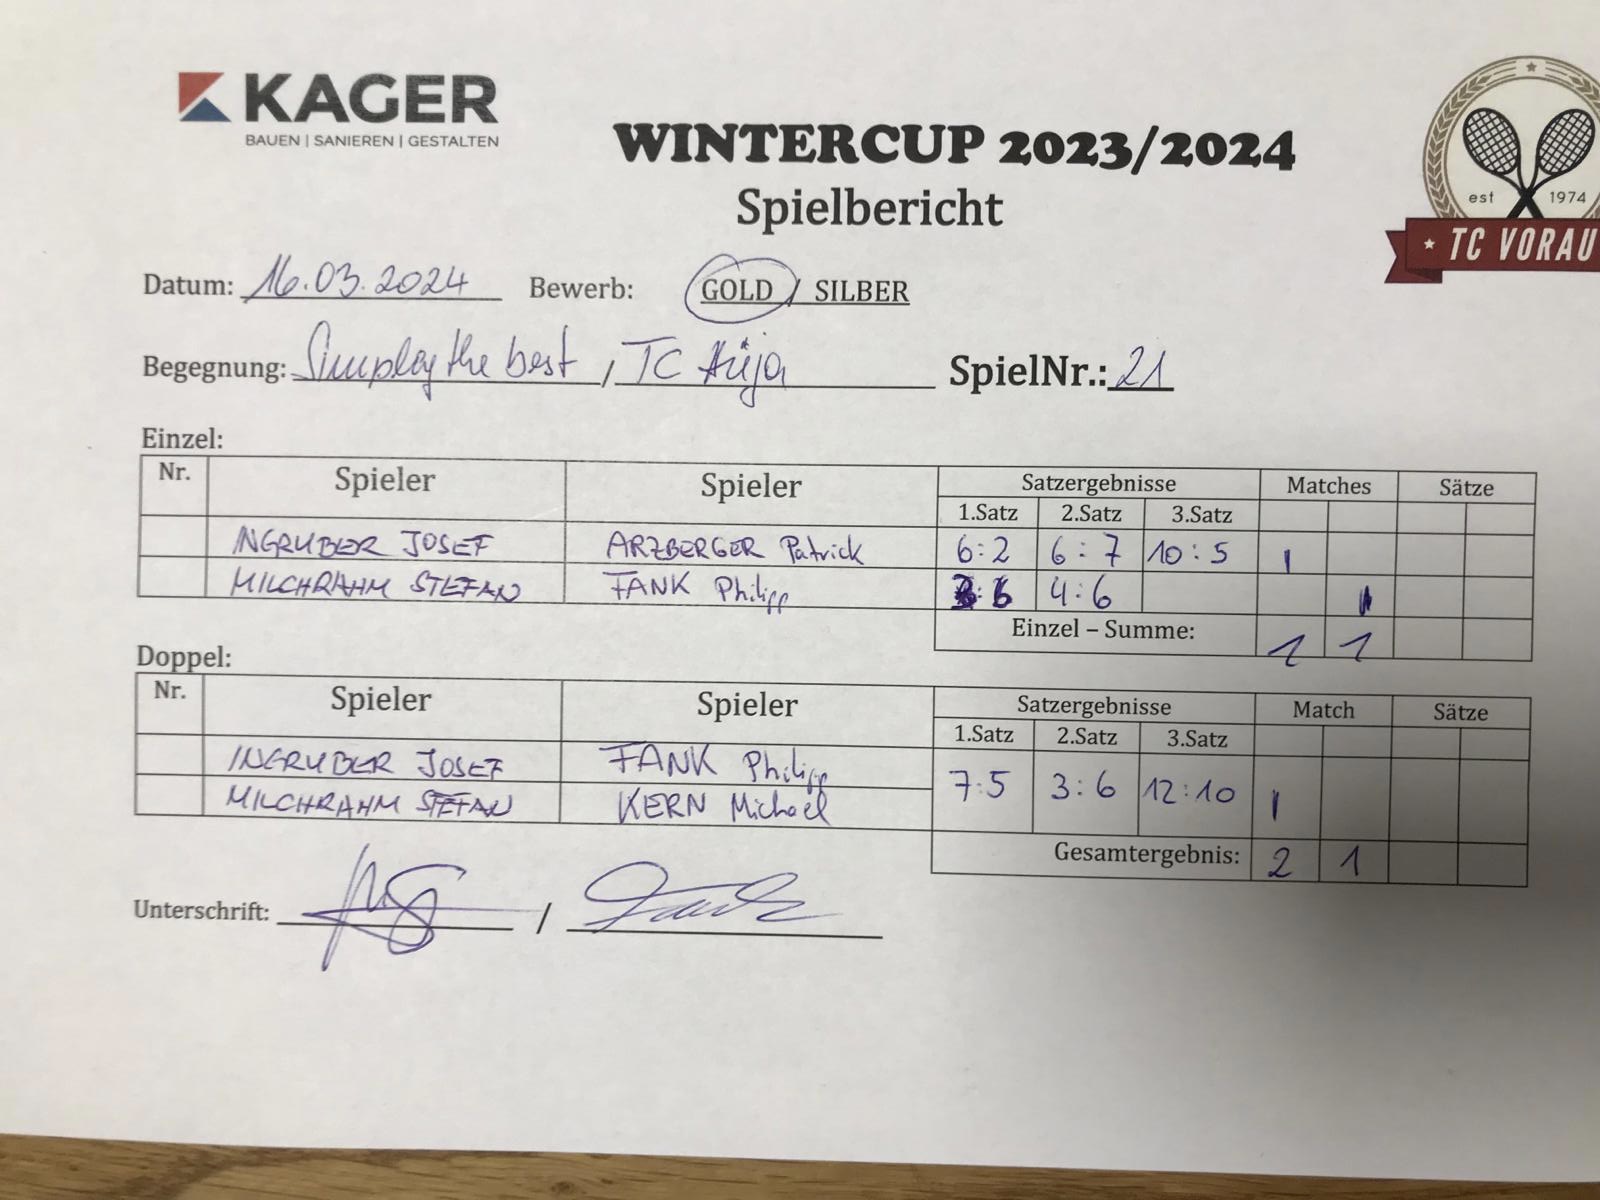 KAGER
BAUEN | SANIEREN | GESTALTEN
WINTERCUP 2023/2024
Spielbericht
est 1974
★ TC VORAU
Datum: 16.03.2024 Bewerb: GOLD / SILBER
Begegnung: Simplay the best / TC SpielNr.: 21
Einzel:
Nr. Spieler Spieler Satzergebnisse Matches Sätze
1.Satz 2.Satz 3.Satz
INGRUBER JOSEF ARZBERGER Patrick 6:2 6:7 10:5 1
MILCHRAHM STEFAN FANK Philipp :6 4:6 1
Einzel – Summe: 1 1
Doppel:
Nr. Spieler Spieler Satzergebnisse Match Sätze
1.Satz 2.Satz 3.Satz
INGRUBER JOSEF FANK Philipp 7:5 3:6 12:10 1
MILCHRAHM STEFAN KERN Michael
Gesamtergebnis: 2 1
Unterschrift: /